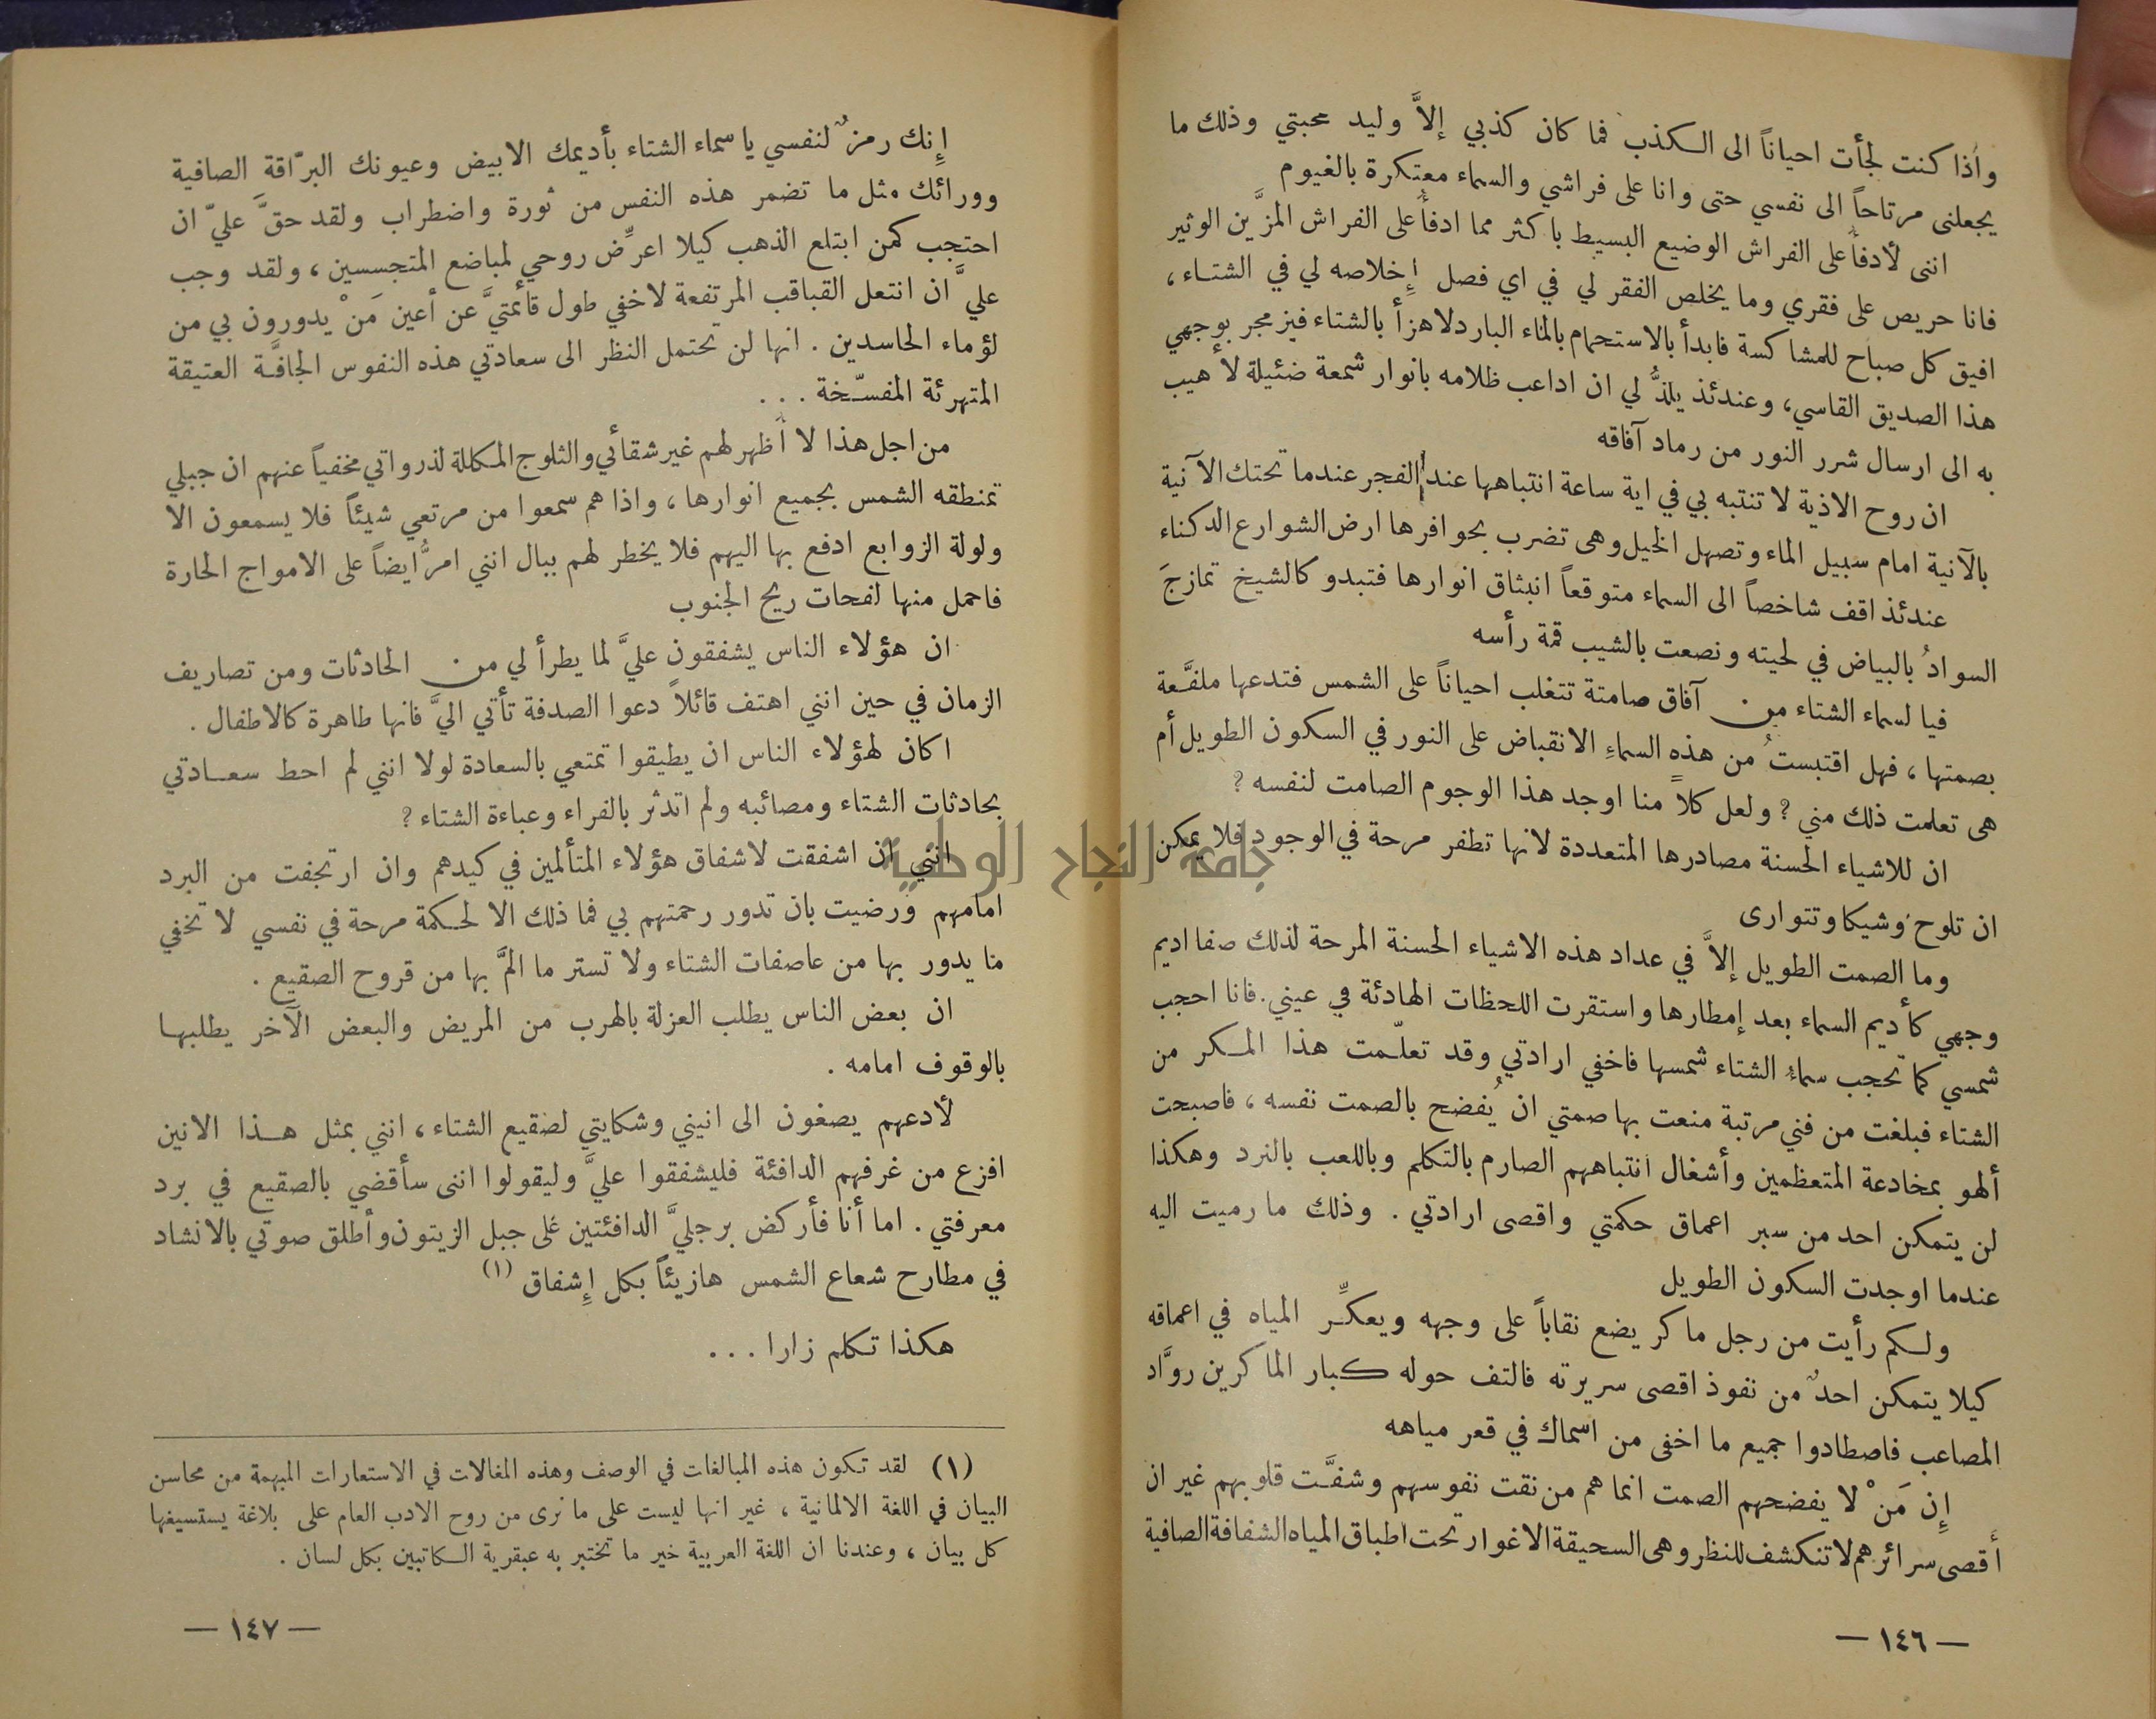 واذا كنت لجأت احياناً الى الكذب فما كان كذبي إلاَّ وليد محبتي وذلك ما
يجعلنى مرتاحاً الى نفسي حتى وانا على فراشي والسماء معتكرة بالغيوم
اننى لأدفأ على الفراش الوضيع البسيط باكثر مما ادفأ على الفراش المزَّين الوثير
فانا حريص على فقري وما يخلص الفقر لي في اي فصل إِخلاصه لي في الشتاء ،
افيق كل صباح للمشاكسة فابدأ بالاستحمام بالماء البارد لاهزأ بالشتاء فيزمجر بوجهي
هذا الصديق القاسي، وعندئذ يلذُّ لي ان اداعب ظلامه بانوار شمعة ضئيلة لأهيب
به الى ارسال شرر النور من رماد آفاقه
ان روح الاذية لا تنتبه بي في اية ساعة انتباهها عند الفجر عندما تحتك الآنية
بالآنية امام سبيل الماء وتصهل الخيل وهى تضرب بحوافرها ارض الشوارع الدكناء
عندئذ اقف شاخصاً الى السماء متوقعاً انبثاق انوارها فتبدو كالشيخ تمازجَ
السوادُ بالبياض في لحيته ونصعت بالشيب قمة رأسه
فيا لسماء الشتاء من آفاق صامتة تتغلب احياناً على الشمس فتدعها ملفَّعة
بصمتها ، فهل اقتبستُ من هذه السماءِ الانقباض على النور في السكون الطويل أم
هى تعلمت ذلك مني ? ولعل كلاًّ منا اوجد هذا الوجوم الصامت لنفسه ?
ان للاشياء الحسنة مصادرها المتعددة لانها تطفر مرحة في الوجود فلا يمكن
ان تلوح وشيكا وتتوارى
وما الصمت الطويل إلاَّ في عداد هذه الاشياء الحسنة المرحة لذلك صفا اديم
وجهي كأديم السماء بعد إمطارها واستقرت اللحظات الهادئة في عيني. فانا احجب
شمسي كما تحجب سماءُ الشتاء شمسها فاخفي ارادتي وقد تعلّمت هذا المكر من
الشتاء فبلغت من فني مرتبة منعت بها صمتي ان يُفضح بالصمت نفسه ، فاصبحت
ألهو بمخادعة المتعظمين وأشغال انتباههم الصارم بالتكلم وباللعب بالنرد وهكذا
لن يتمكن احد من سبر اعماق حكمتي واقصى ارادتي . وذلك ما رميت اليه
عندما اوجدت السكون الطويل
ولكم رأيت من رجل ماكر يضع نقاباً على وجهه ويعكِّر المياه في اعماقه
كيلا يتمكن احدٌ من نفوذ اقصى سريرته فالتف حوله كبار الماكرين روَّاد
المصاعب فاصطادوا جميع ما اخفى من اسماك في قعر مياهه
إِن مَنْ لا يفضحهم الصمت انما هم من نقت نفوسهم وشفَّت قلوبهم غير ان
أقصى سرائرهم لا تنكشف للنظر وهى السحيقة الاغوار تحت اطباق المياه الشفافة الصافية
— ١٤٦ —
إِنك رمزٌ لنفسي يا سماء الشتاء بأديمك الابيض وعيونك البرّاقة الصافية
وورائك مثل ما تضمر هذه النفس من ثورة واضطراب ولقد حقَّ عليّ ان
احتجب كمن ابتلع الذهب كيلا اعرِّض روحي لمباضع المتجسسين ، ولقد وجب
عليَّ ان انتعل القباقب المرتفعة لاخفي طول قائمتيَّ عن أعين مَنْ يدورون بي من
لؤماء الحاسدين . انها لن تحتمل النظر الى سعادتي هذه النفوس الجافَّة العتيقة
المتهرئة المفسّخة . . .
من اجل هذا لا أظهر لهم غير شقائي والثلوج المكللة لذرواتي مخفياً عنهم ان جبلي
تمنطقه الشمس بجميع انوارها ، واذا هم سمعوا من مرتعي شيئاً فلا يسمعون الا
ولولة الزوابع ادفع بها اليهم فلا يخطر لهم ببال انني امرُّ ايضاً على الامواج الحارة
فاحمل منها لفحات ريح الجنوب
ان هؤلاء الناس يشفقون عليَّ لما يطرأ لي من الحادثات ومن تصاريف
الزمان في حين انني اهتف قائلاً دعوا الصدفة تأتي اليَّ فانها طاهرة كالاطفال .
اكان لهؤلاء الناس ان يطيقوا تمتعي بالسعادة لولا انني لم احط سعادتي
بحادثات الشتاء ومصائبه ولم اتدثر بالفراء وعباءة الشتاء ?
انني ان اشفقت لاشفاق هؤلاء المتألمين في كيدهم وان ارتجفت من البرد
امامهم ورضيت بان تدور رحمتهم بي فما ذلك الا لحكمة مرحة في نفسي لا تخفي
ما يدور بها من عاصفات الشتاء ولا تستر ما المَّ بها من قروح الصقيع .
ان بعض الناس يطلب العزلة بالهرب من المريض والبعض الآخر يطلبها
بالوقوف امامه .
لأدعهم يصغون الى انيني وشكايتي لصقيع الشتاء ، انني بمثل هذا الانين
افزع من غرفهم الدافئة فليشفقوا عليَّ وليقولوا اننى سأقضي بالصقيع في برد
معرفتي . اما أنا فأركض برجليَّ الدافئتين على جبل الزيتون وأطلق صوتي بالانشاد
في مطارح شعاع الشمس هازيئاً بكل إِشفاق (١)
هكذا تكلم زارا . . .
(١) لقد تكون هذه المبالغات في الوصف وهذه المغالات في الاستعارات المبهمة من محاسن
البيان في اللغة الالمانية ، غير انها ليست على ما نرى من روح الادب العام على بلاغة يستسيغها
كل بيان ، وعندنا ان اللغة العربية خير ما تختبر به عبقرية الكاتبين بكل لسان .
— ١٤٧ —
جامعة النجاح الوطنية